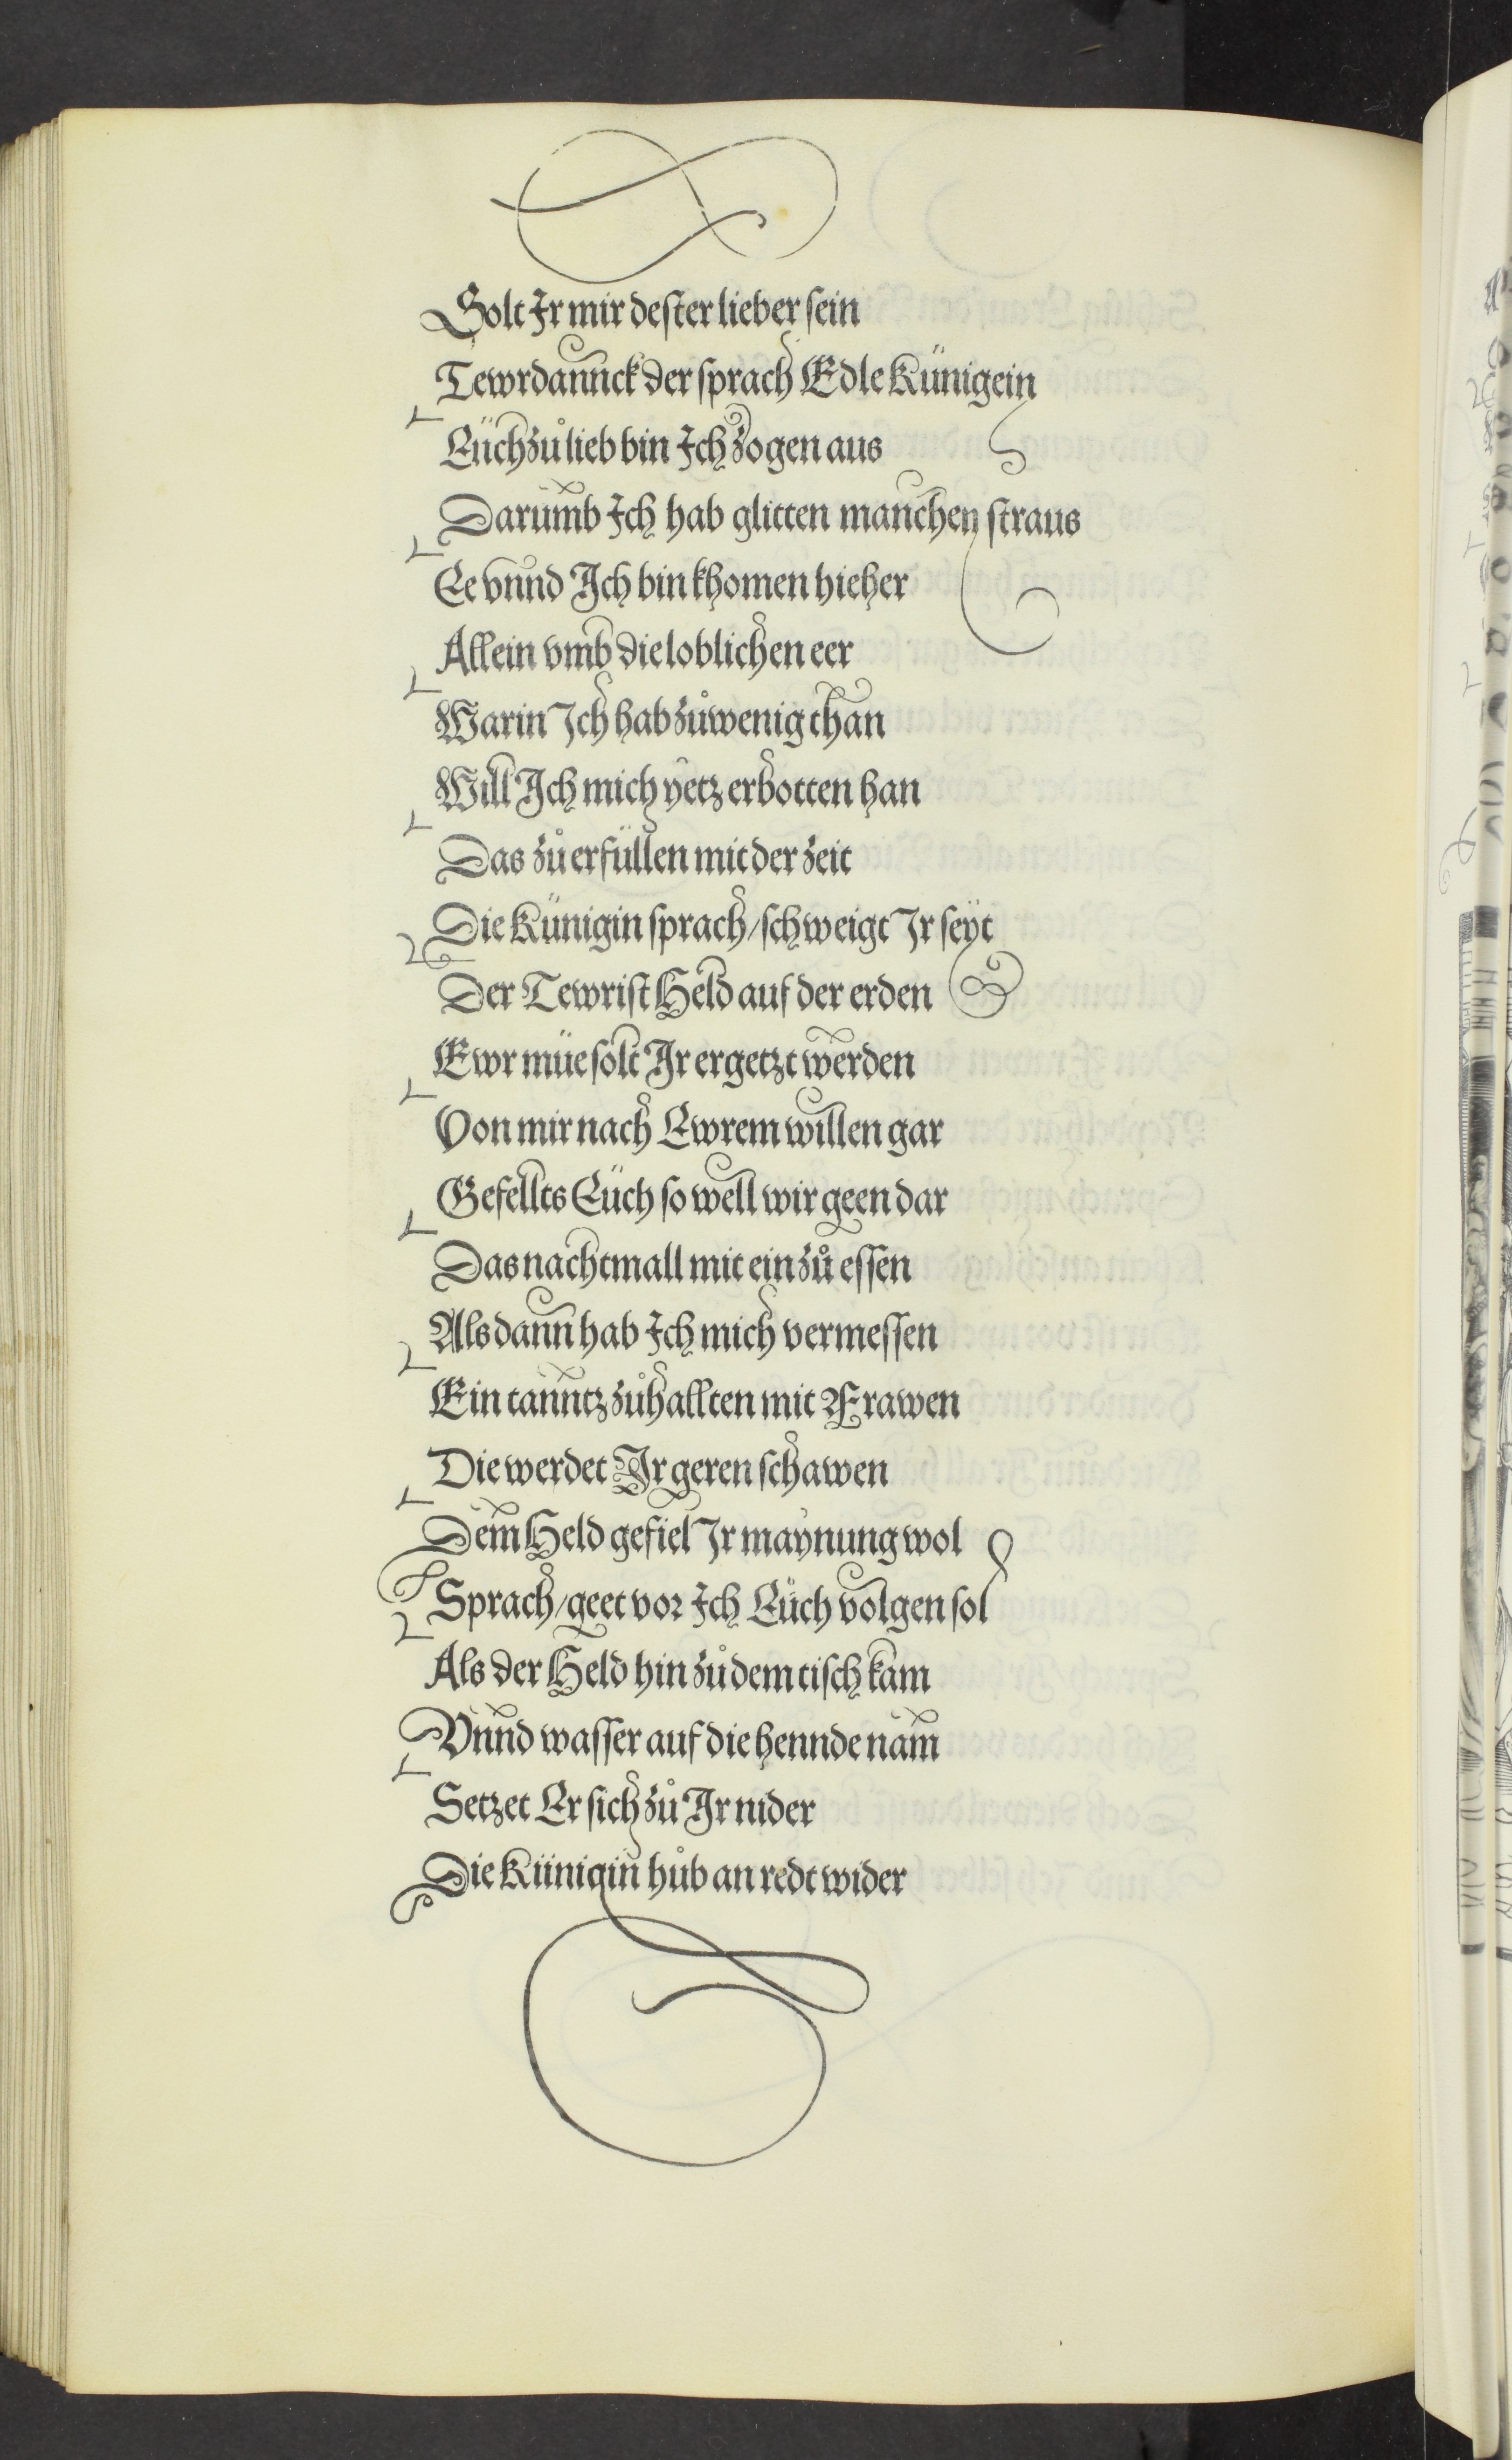 Solt Ir mir dester lieber sein
Tewrdannck der sprach Edle Künigein
Eüch zů lieb bin Ich zogen aus
Darumb Ich hab glitten manchen straus
Ee vnnd Ich bin khomen hieher
Allein vmb die loblichen eer
Warin Ich hab zů wenig than
Will Ich mich yetz erbotten han
Das zů erfüllen mit der zeit
Die Künigin sprach / schweigt Ir seyt
Der Tewrist Held auf der erden
Ewr müe solt Ir ergetzt werden
Von mir nach Ewrem willen gar
Gefellts Eüch so well wir geen dar
Das nachtmall mit ein zů essen
Als dann hab Ich mich vermessen
Ein tanntz zů hallten mit Frawen
Die werdet Ir geren schawen
Dem Held gefiel Ir maynung wol
Sprach / geet vor Ich Eüch volgen sol
Als der Held hin zů dem tisch kam
Vnnd wasser auf die hennde nam
Setzet Er sich zů Ir nider
Die Künigin hůb an redt wider